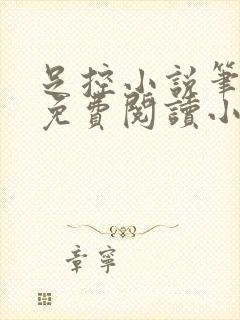 足控小說筆
免費閱讀小
章寧